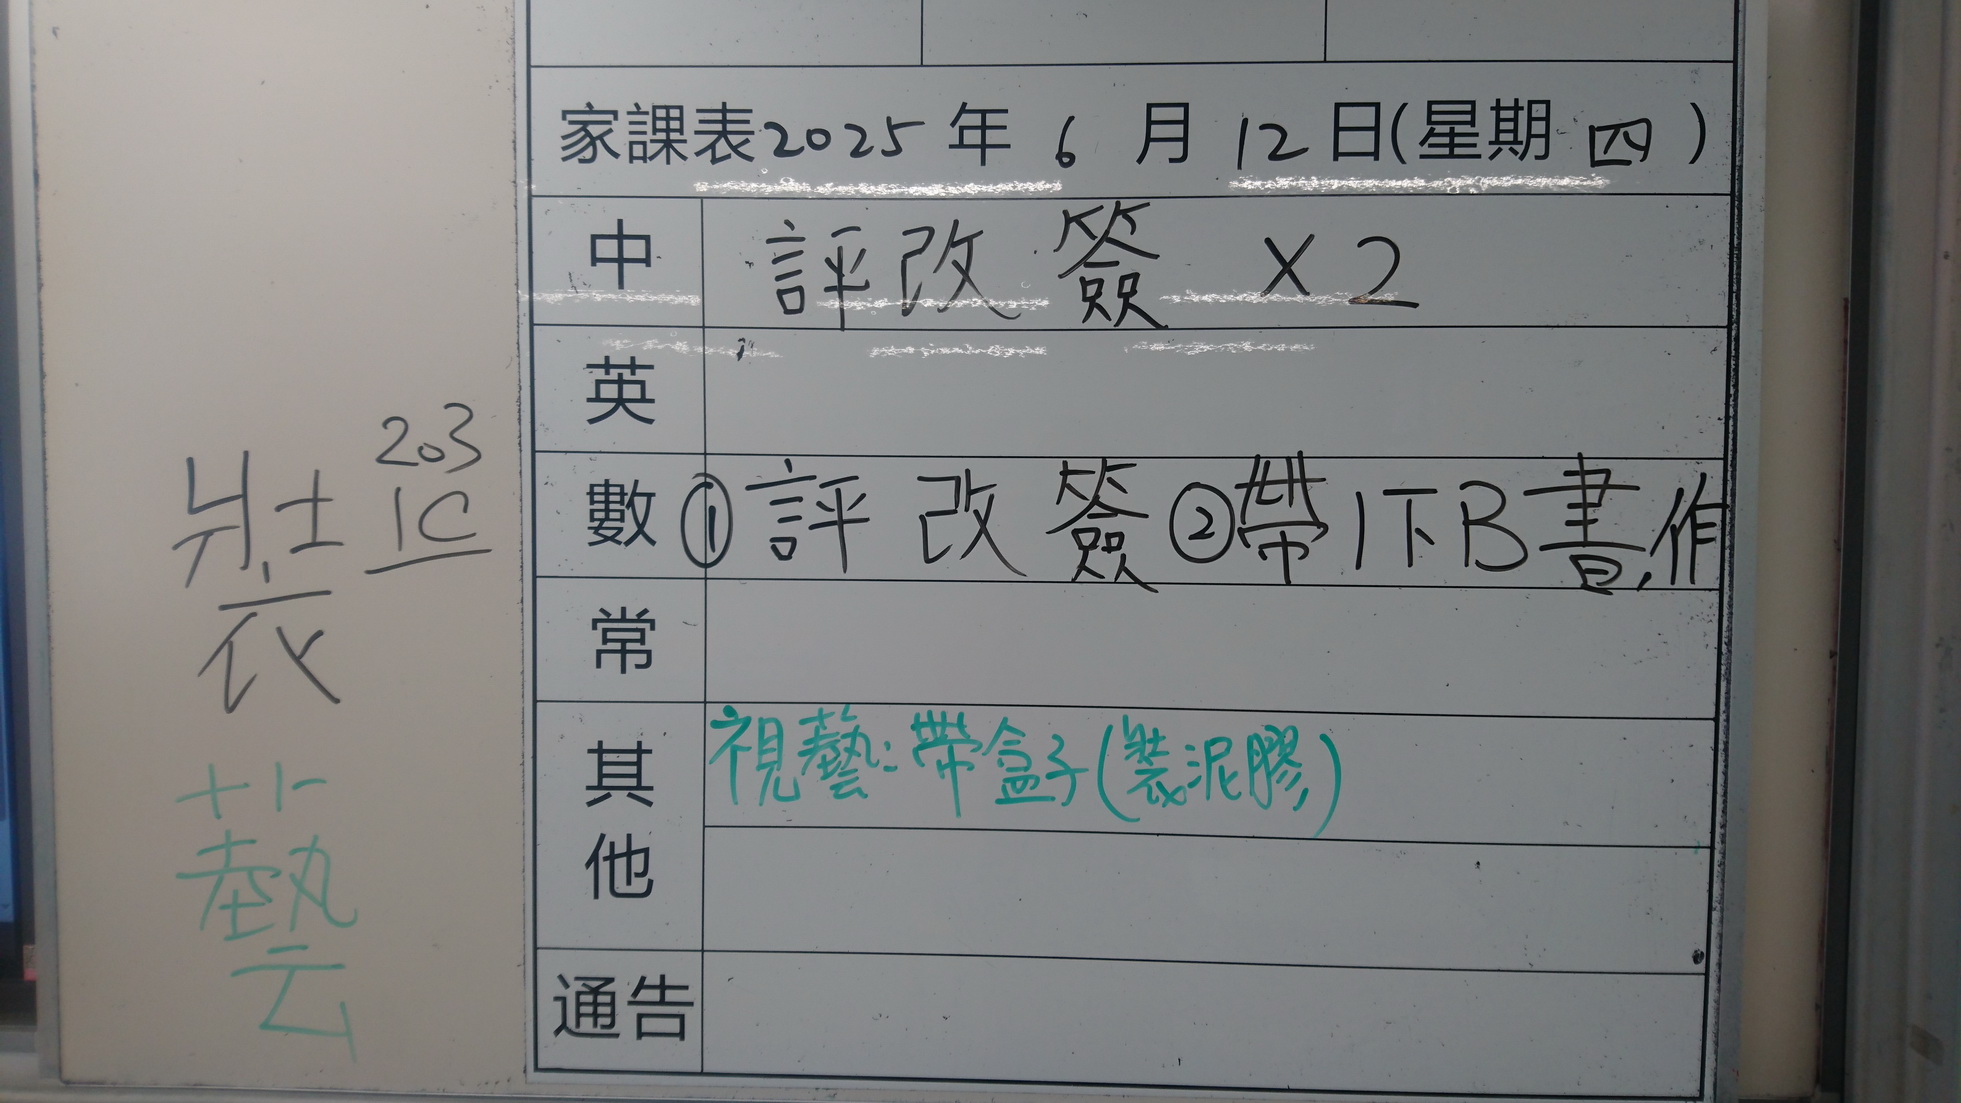 家課表2025年6月12日(星期四)
中 評改簽 X2
英
數 ①評改簽②帶1下B書,作
常
其他 視藝:帶盒子(裝泥膠)
通告
203
1C
裝
藝